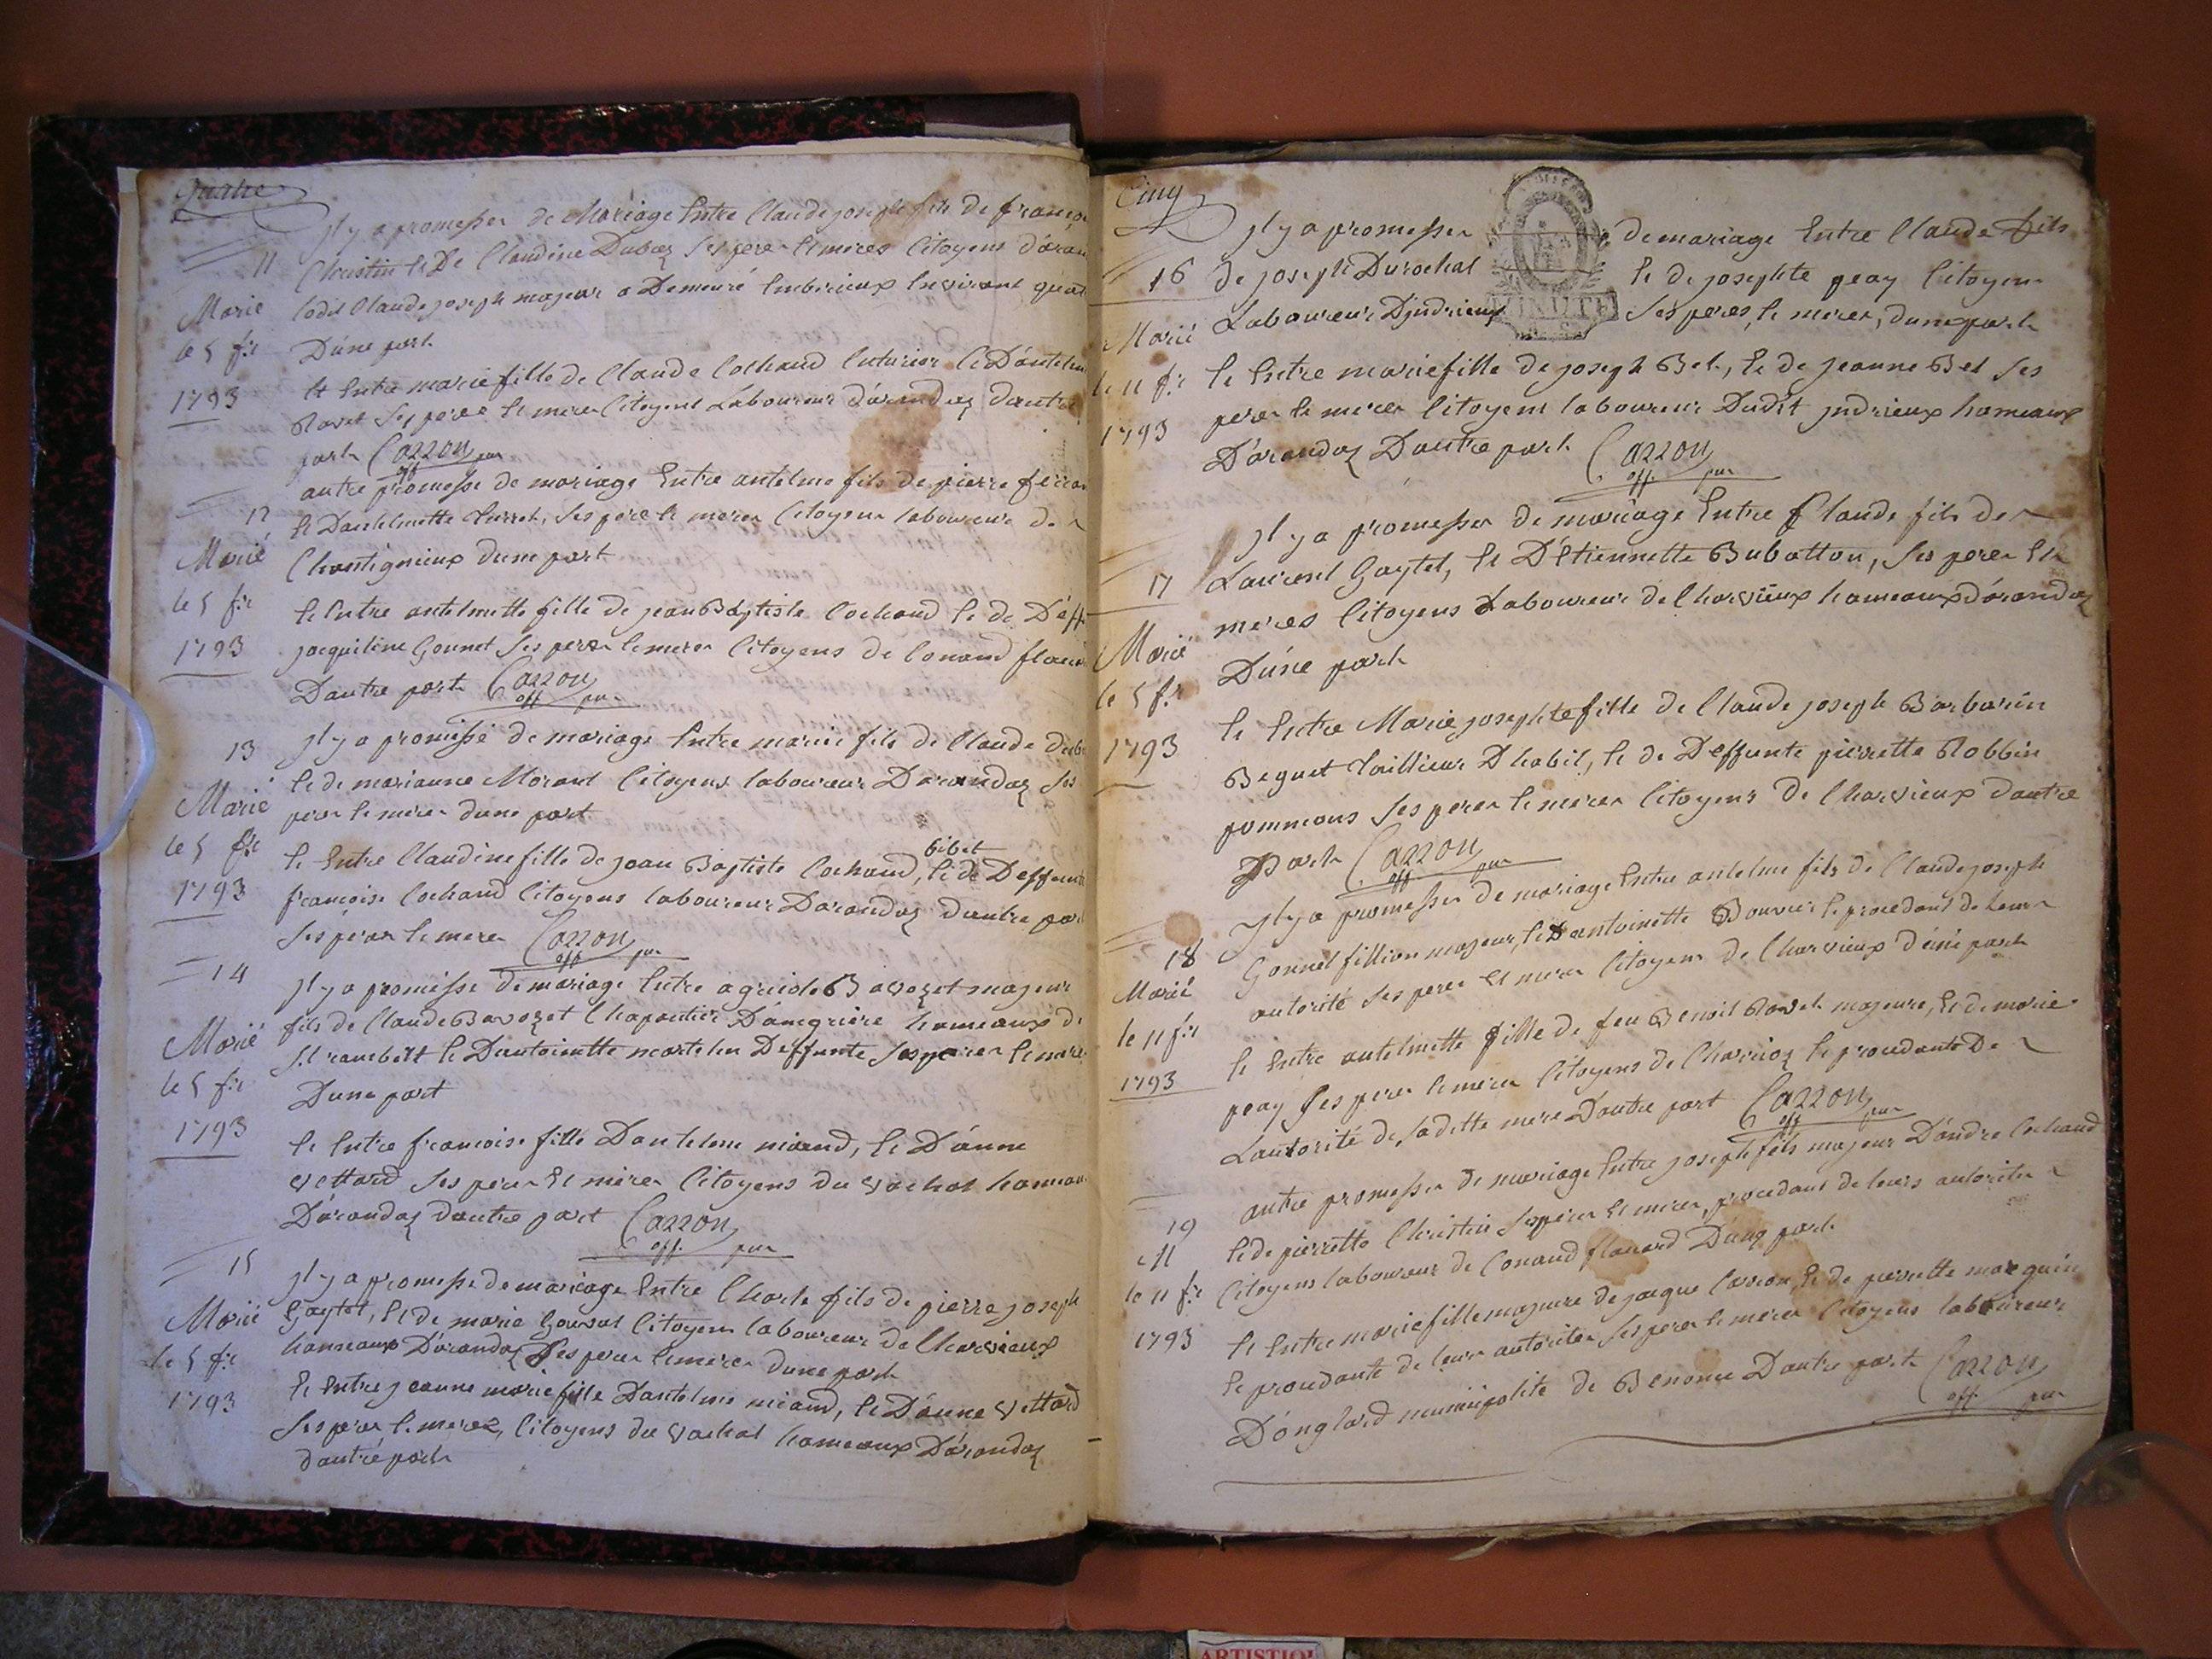 Quatre
11
Marié
le 5 f.r
1793
Jl y a promesses de Mariage Entre Claude joseph fils de françois
Christin et De Claudine Duboz Ses pere et meres Citoyens
ledit Claude joseph majeur a Demeuré Environt
D'une part
et Entre marie fille de Claude Cochand et D'antelme
Ravet Ses peres et meres Citoyens Laboureur d'arandaz Dautre
part Cazzon off pur
12
Marié
le 5 f.r
1793
autre promesse de mariage Entre antelme fils de pierre
et Dantelmette Ses pere et meres Citoyens laboureur de
Chantignieux dune part
et Entre antelmette fille de jean Baptiste Cochand et de Deff
jacquiline Gonnet Ses peres et meres Citoyens de Conand
Dautre part Cazzon off pur
13
Marié
le 5 f.r
1793
Jl y a promesse de mariage Entre marie fils de Claude
et de marianne Morant Citoyens laboureur Darandaz Ses
peres et meres dune part
bibet
et Entre Claudine fille de jean Baptiste Cochand, et de Deffunte
francoise Cochand Citoyens laboureur Darandaz dautre part
Ses peres et meres Cazzon off pur
14
Marié
le 5 f.r
1793
Jl y a promesse de mariage Entre Bavozet majeur
fils de Claude Bavozet Chapentier hameaux de
St rambert et Dantoinette martelin Deffunte Ses peres et meres
Dune part
et Entre francoise fille Dantelme miand, et D'anne
vettard Ses peres et meres Citoyens du vachat hameau
D'arandaz dautre part Cazzon off. pur
15
Marié
le 5 f.r
1793
Jl y a promesse de mariage Entre Charle fils de pierre joseph
Gaytet, et de marie Citoyens laboureur de Charvieux
hameaux D'arandaz Ses peres et meres dune part
et Entre jeanne marie fille Dantelme miand, et D'anne vettard
Ses peres et meres, Citoyens du vachat hameaux D'arandaz
dautre part
Cinq
16
Marié
le 11 f.r
1793
Jl y a promesses de mariage Entre Claude fils
de joseph Durochat et de josephte peay Citoyens
Laboureur D'jndrieux Ses peres, et meres, dune part
MINUTE
et Entre marie fille de joseph Bel, et de Jeanne Bel Ses
peres et meres Citoyens laboureur Dudit jndrieux hameaux
D'arandaz Dautre part Cazzon off. pur
17
Marié
le 5 f.r
1793
Jl y a promesses de mariage Entre Claude fils de
Laurent Gaytet, et D'Etiennette Bubatton, Ses peres et
meres Citoyens Laboureur de Charvieux hameaux d'arandaz
D'une part
et Entre Marie josephte fille de Claude joseph Barbarin
Beguet Taillieur D'habit, et de Deffunte pierrette Robbin
pommeons Ses peres et meres Citoyens de Charvieux dautre
Part Cazzon off pur
18
Marié
le 11 f.r
1793
Jl y a promesses de mariage Entre antelme fils de Claude joseph
Gonnet fillion majeur, et D'antoinette Bouvier et procedant de Leur
autorité Ses peres et meres Citoyens de Charvieux d'une part
et Entre antelmette fille de feu Benoit Ravet majeure, et de marie
peay Ses peres et meres Citoyens de et procedante De
L'autorité de sadette mere Dautre part Cazzon off pur
19
M
le 11 f.r
1793
autre promesses de mariage Entre joseph fils majeur D'andre Cochand
et de pierrette Christin Ses peres et meres, procedant de leurs autorites
Citoyens laboureur de Conand D'une part
et Entre marie fille majeure de jacque et de pierrette marguin
et procedante de leurs autorites Ses peres et meres Citoyens laboureur
D'anglard municipalite de Benonce Dautre part Cazzon off. pur